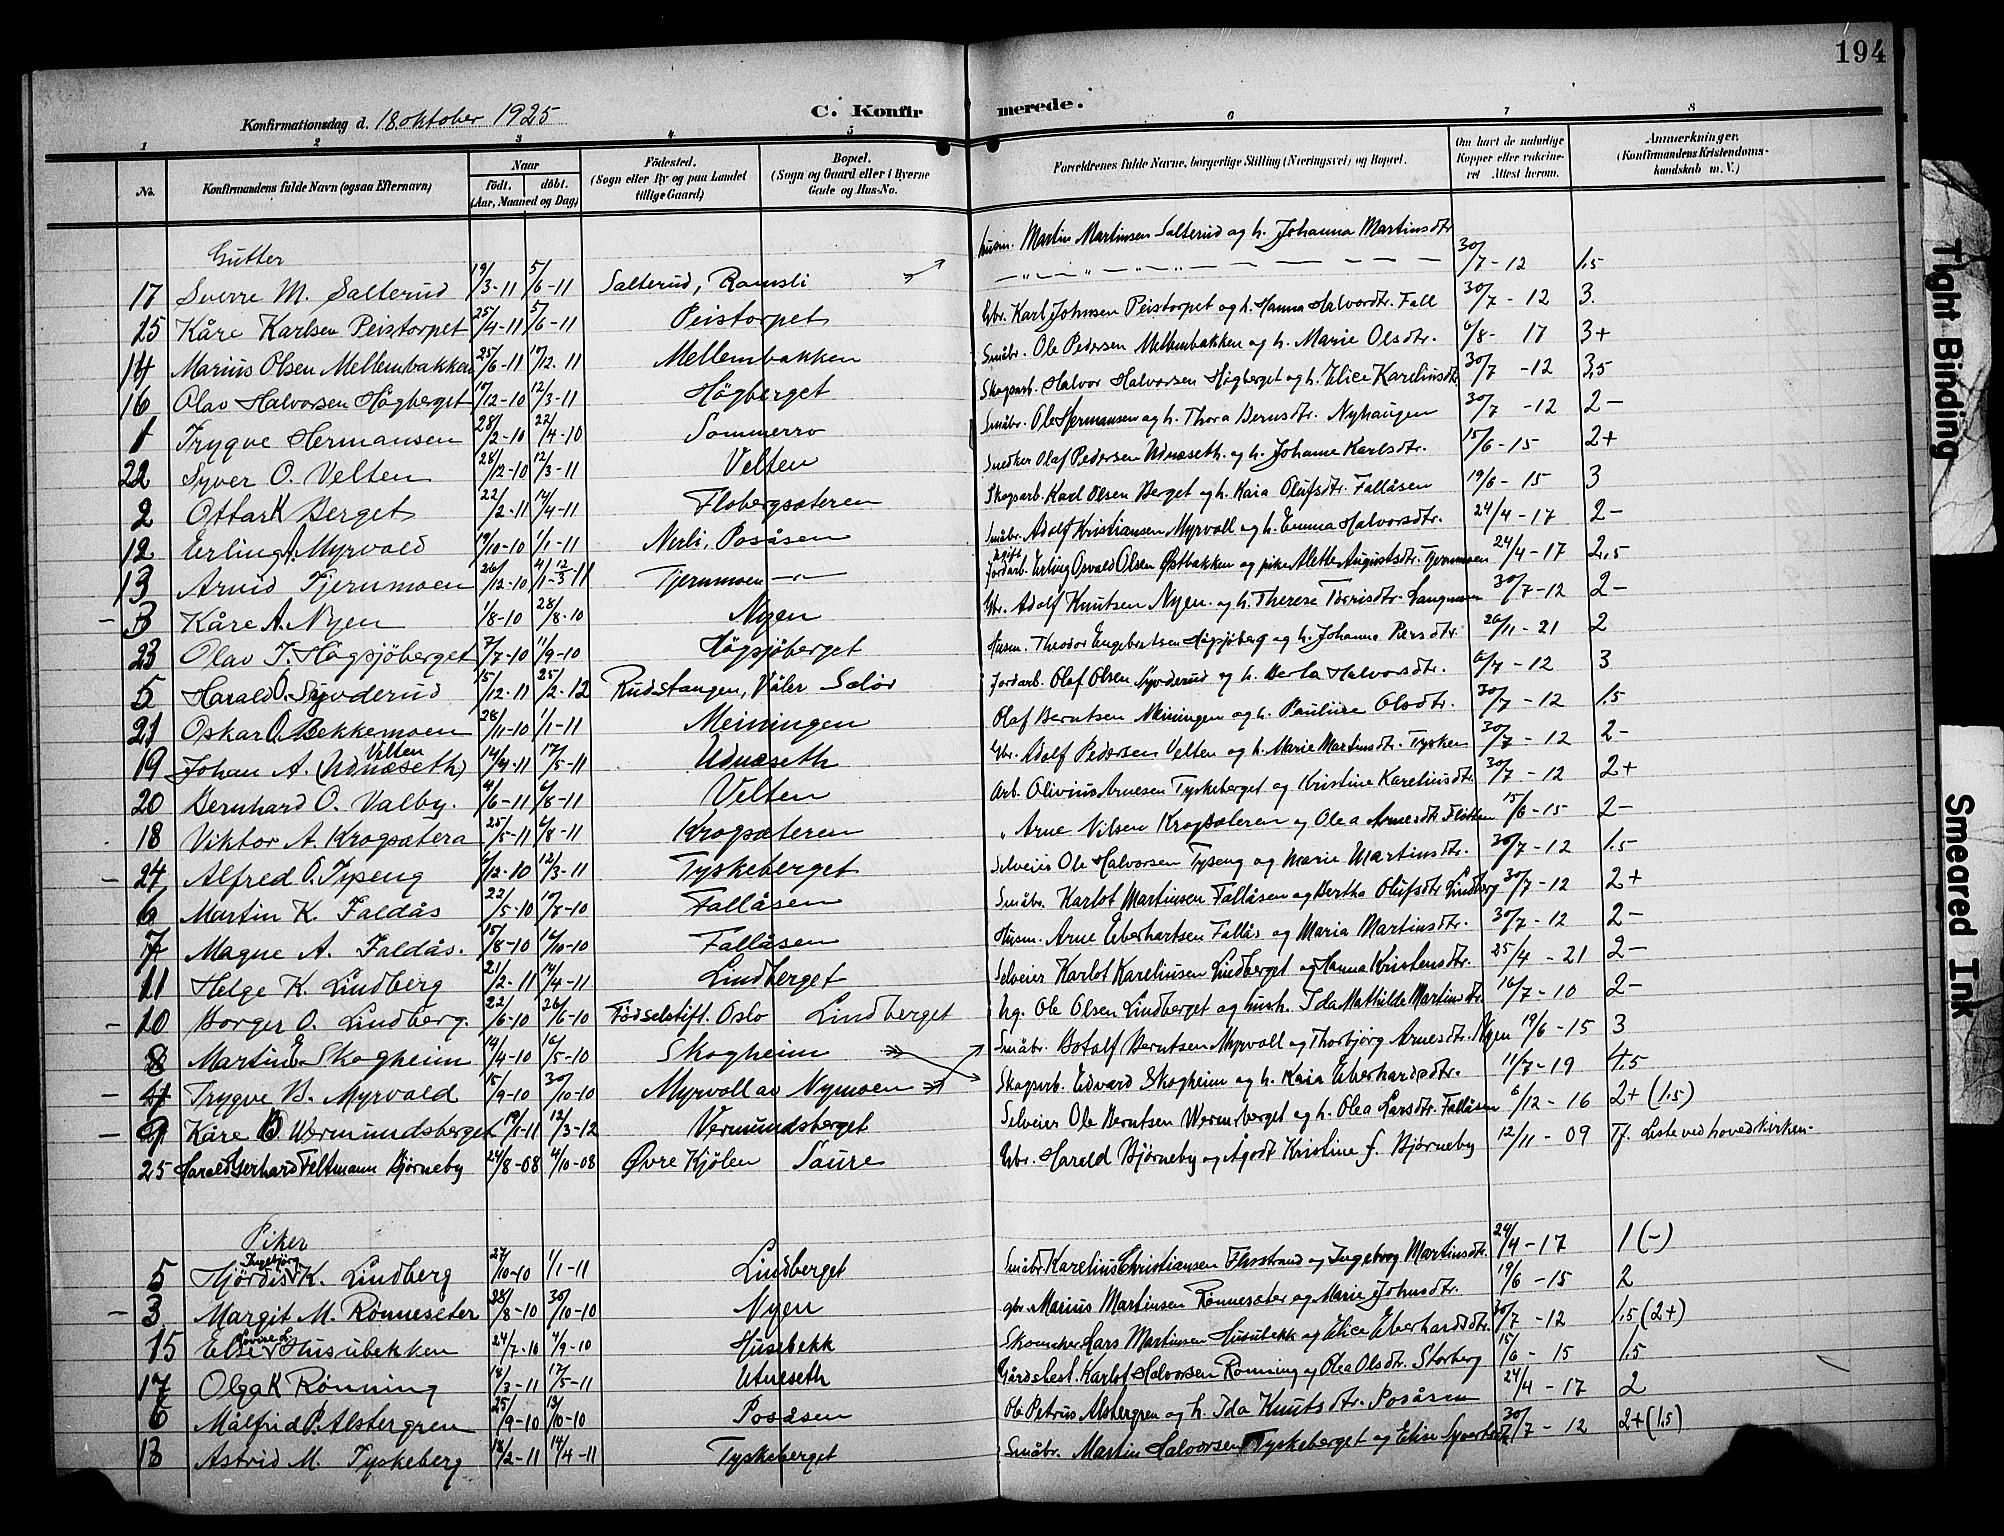 194
Konfirmationsdag d. 18 oktober 1925
C. Konfirmerede.
1 2 3 4 5 6 7 8
No. Konfirmandens fulde Navn (ogsaa Efternavn) Naar født. døbt. (Aar, Maaned og Dag) Fødested. (Sogn eller By og paa Landet tillige Gaard) Bopæl. (Sogn og Gaard eller i Byerne Gade og Hus-No. Forældrenes fulde Navne, borgerlige Stilling (Næringsvei) og Bopæl. Om havt de naturlige Kopper eller vaccineret Attest herom. Anmærkninger. (Konfirmandens Kristendomskundskab m. V.)
Gutter
husm. Martin Martinsen Salterud og h. Johanna Martinsdtr
17 Sverre M. Salterud 19/3-11 5/6-11 Salterud, Ramsli — „ — „ — 30/7-12 1.5
15 Kåre Karlsen Peistorpet 25/4-11 5/6-11 Peistorpet Gbr. Karl Johnsen Peistorpet og h. Hanna Halvordtr. Fall 30/7-12 3.
14 Marius Olsen Mellembakken 25/6-11 17/12-11 Mellembakken Småbr. Ole Pedersen Mellembakken og h. Marie Olsdtr. 6/8-17 3+
16 Olav Halvorsen Högberget 17/12-10 12/3-11 Högberget Skogsarb. Halvor Halvorsen Högberget og h. Elice Kareliusdtr 30/7-12 3,5
1 Trygve Hermansen 28/2-10 22/4-10 Sommerro Småbr. Ole Hermansen og h. Thora Berntsdtr. Nyhaugen 30/7-12 2-
22 Syver O. Velten 28/12-10 12/3-11 Velten Snedker Olaf Pedersen Udnæseth. og h. Johanne Karlsdtr. 15/6-15 2+
2 Ottar K Berget 22/2-11 17/4-11 Flobergsæteren Skogsarb. Karl Olsen Berget og h. Kaia Olufsdtr. Fallåsen 19/6-15 3
12 Erling A. Myrvold 19/10-10 1/1-11 Nerli, Posåsen Småbr. Adolf Kristiansen Myrvoll og h. Emma Halvorsdtr. 24/4-17 2-
13 Arvid Tjernmoen 26/12-10 Tjernmoen —„— ugift Jordarb. Erling Osvald Olsen Østbakken og pike Alette Augustsdtr. Tjernmoen 24/4-17 2,5
3 Kåre A. Nyen 1/8-10 28/8-10 Nyen Gbr. Adolf Knutsen Nyen og h. Therese Törrisdtr. Langmoen 30/7-12 2-
23 Olav T. Högsjöberget 7/7-10 11/9-10 Högsjöberget Husm. Theodor Engebretsen Högsjöberg og h. Johanne Persdtr. 26/11-21 2
5 Harald O. Syvderud 15/12-11 25/2-12 Rudstangen, Våler Solør Jordarb. Olaf Olsen Syvderud og h. Berta Halvorsdtr. 6/7-12 3
21 Oskar O. Bekkemoen 28/11-10 1/1-11 Meiningen Olaf Berntsen Meiningen og h. Pauline Olsdtr. 30/7-12 1.5
19 Johan A. (Udnæseth) Velten 14/4-11 17/5-11 Udnæseth Gbr. Adolf Pedersen Velten og h. Marie Martinsdtr. Tysken 30/7-12 2-
20 Bernhard O. Valby. 4/6-11 6/8-11 Velten Arb. Olivius Arnesen Tyskeberget og Kristine Kareliusdtr. 30/7-12 2+
18 Viktor A. Krogsætera 25/5-11 6/8-11 Krogsæteren „ Arne Nilsen Krogsæteren og Olea Arnesdtr 15/6-15 2-
24 Alfred O. Tyseng 6/12-10 12/3-11 Tyskeberget Selveier Ole Halvorsen Tyseng og Marie Martinsdtr. 30/7-12 1.5
6 Martin K. Faldås 22/5-10 10/7-10 Fallåsen Småbr. Karlot Martinsen Fallåsen og Bertha Olufsdtr. Lindberg 30/7-12 2+
7 Magne A. Faldås. 15/8-10 16/10-10 Fallåsen Husm. Arne Eberhartsen Fallås og Maria Martinsdtr. 30/7-12 2-
11 Helge K. Lindberg 21/2-11 17/4-11 Lindberget Selveier Karlot Kareliusen Lindberget og Hanna Kristensdtr. 25/4-21 2-
10 Borger O. Lindberg. 22/6-10 26/6-10 Fødselstift. Oslo Lindberget Ug. Ole Olsen Lindberget og hush. Ida Mathilde Martinsdtr 16/7-10 2-
8 Martin E. Skogheim 14/4-10 16/5-10 Skogheim Småbr. Botolf Berntsen Myrvoll og Thorbjörg Arnesdtr. Nyen 19/6-15 3
4 Trygve B. Myrvold 15/9-10 30/10-10 Myrvoll av Nymoen Skogsarb. Edvard Skogheim og h. Kaia Eberhardsdtr. 11/7-19 4.5
9 Kåre O Wermundsberget 19/1-11 12/3-12 Vermundsberget Selveier Ole Berntsen Wermberget og h. Olea Larsdtr. Fallåsen 6/12-16 2+ (1.5)
25 Harald Gerhard Feltmann Bjørneby 24/8-08 4/10-08 Øvre Kjölen Saure Gbr. Harald Bjørneby og Agodt Kristine f. Bjørneby 12/11-09 Tf. Liste ved hovedkirken-
Piker
5 Hjördis Ingebjörg K. Lindberg 27/10-10 1/1-11 Lindberget Småbr. Karelius Christiansen Flisstrand og Ingeborg Martinsdtr. 24/4-17 1 (-)
3 Margit M. Rønneseter 28/8-10 30/10-10 Nyen gbr. Marius Martinsen Rønneseter og Marie Johnsdtr. 19/6-15 2
15 Else Husubekken 24/7-10 4/9-10 Husebekk Skomaker Lars Martinsen Husubekk og Elice Eberhardsdtr. 30/7-12 1.5 (2+)
17 Olga K Rønning 18/3-11 17/5-11 Utneseth Gårdsbest. Karlot Halvorsen Rønning og Olea Olsdtr. Storberg 15/6-15 1.5
6 Målfrid P. Alsbergren 25/9-10 13/10-10 Posåsen Ole Petrus Alsbergren og h. Ida Knutsdtr. Posåsen 24/4-17 2
13 Astrid M. Tyskeberg 18/2-11 14/4-11 Tyskeberget Småbr. Martin Halvorsen Tyskeberget og Elise Syvertsdtr 30/7-12 2+ (1.5)
Tight Binding
Smeared Ink